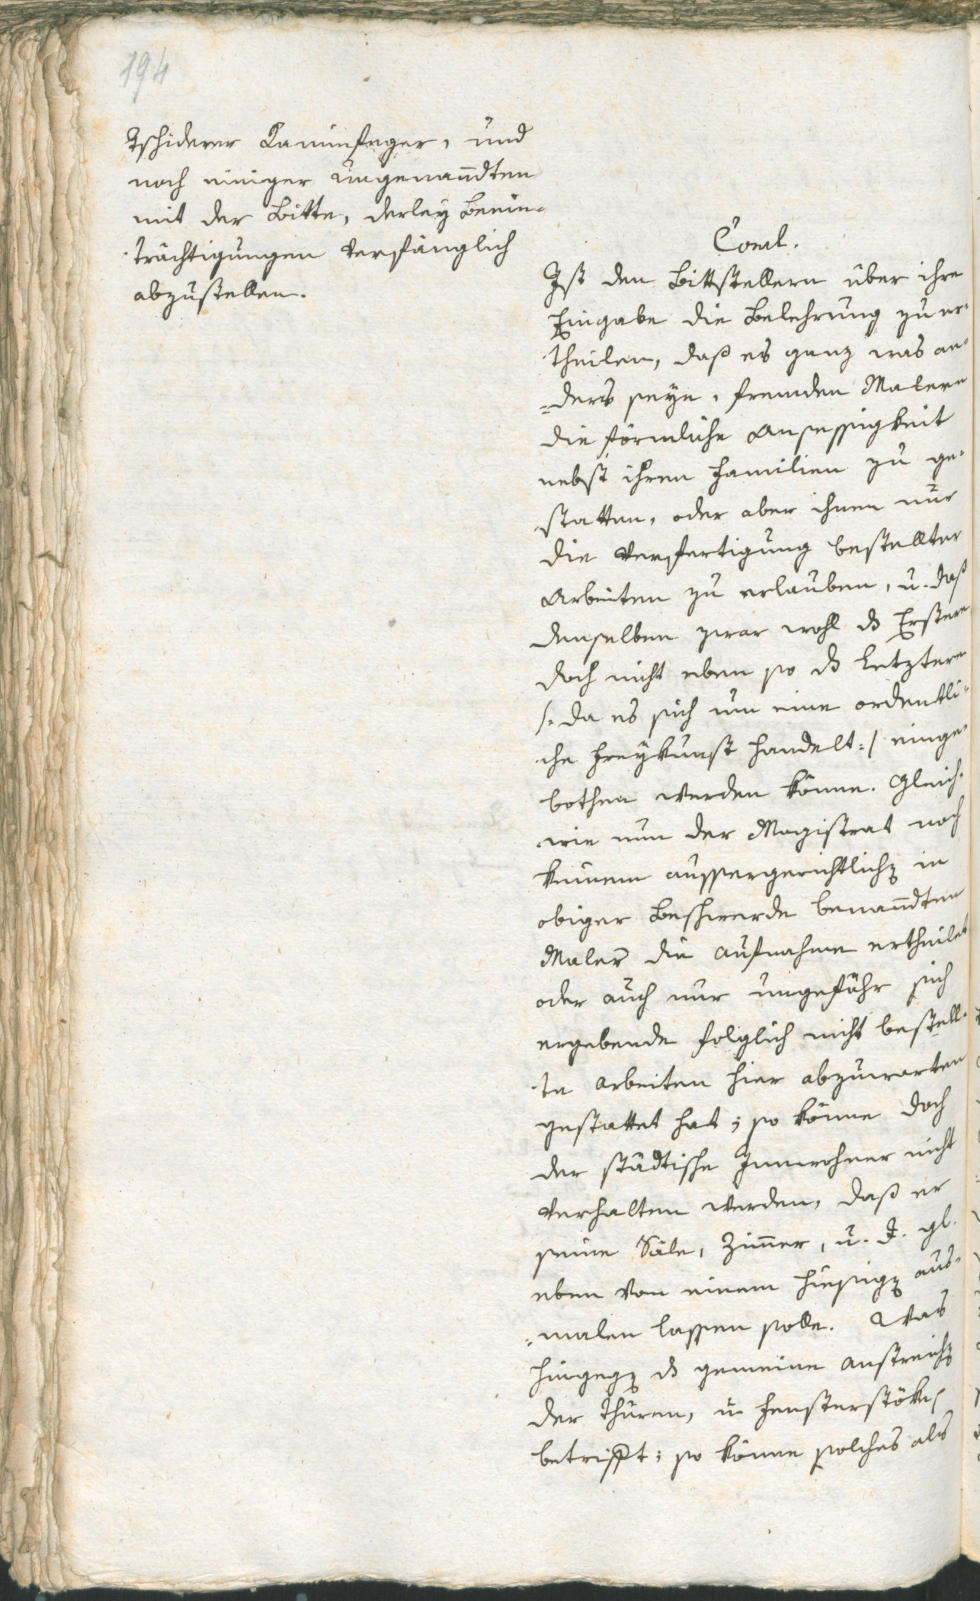 194
Tschiderer Kaminfeger, und
noch einiger ungenañdten
mit der Bitte, derley Beein-
trächtigungen verfänglich
abzustellen.
Concl.
Ist den Bittstellern über ihre
Eingabe die Belehrung zu er-
theilen, daß es ganz was an-
ders seye, fremden Malern
die förmliche Ansessigkeit
nebst ihren Familien zu ge-
statten, oder aber ihnen nur
die Verfertigung bestellter
Arbeiten zu erlauben, u. daß
denselben zwar wohl ds Erstere
doch nicht eben so ds Letztere
/: da es sich um eine ordentli-
che Freykunst handelt :/ einge-
bothen werden könne. Gleich-
wie nun der Magistrat noch
keinem aussergerichtlich in
obiger Beschwerde benañdten
Maler die Aufnahme ertheilet
oder auch nur ungefähr sich
ergebende folglich nicht bestell-
te Arbeiten hier abzuwarten
gestattet hat; so könne doch
der städtische Innwohner nicht
verhalten werden, daß er
seine Säle, Zim̃er, u. d. gl.
eben von einem hiesig aus-
malen lassen solle. Was
hingeg ds gemeine Anstreich
der Thüren, u Fensterstök
betrifft; so könne solches als